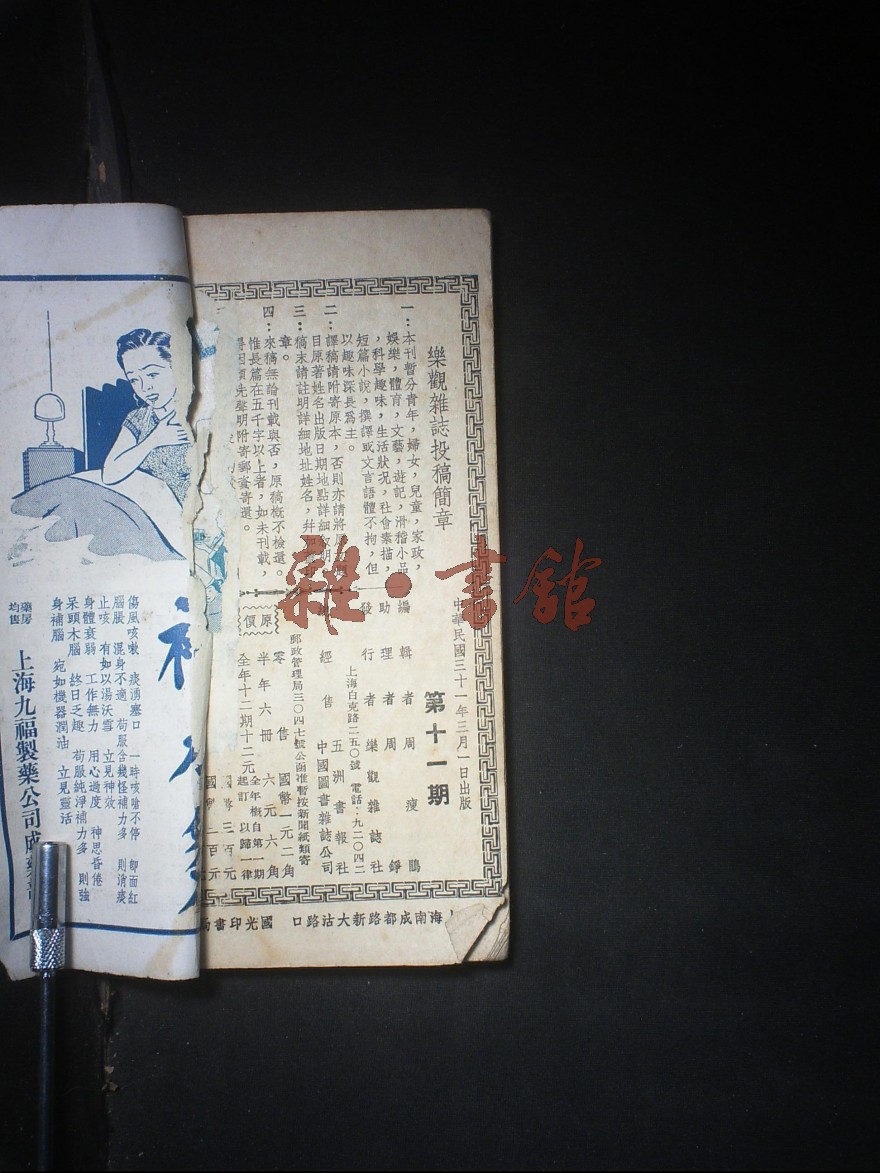 樂觀雜誌投稿簡章
一：本刊暫分青年，婦女，兒童，家政，
娛樂，體育，文藝，遊記，滑稽小品
，科學趣味，生活狀況，社會素描，
短篇小說，撰譯或文言語體不拘，但
以趣味深長為主。
二：譯稿請附寄原本，否則亦請將
目原著姓名出版日期地點詳細敘明。
三：稿末請註明詳細地址姓名，并加
章。
四：來稿無論刊載與否，原稿概不檢還。
惟長篇在五千字以上者，如未刊載，
得因預先聲明附寄郵資寄還。
中華民國三十一年三月一日出版
第十一期
編輯者 周瘦鵑
助理者 周錚
發行者 樂觀雜誌社
上海白克路二五〇號 電話：九二〇四二
五洲書報社
經售 中國圖書雜誌公司
郵政管理局三〇四七號公函准暫按新聞紙類寄
原價
零售 國幣一元二角
半年六冊 六元六角
全年十二期十二元
全年概自第一期
起訂 以歸一律
海南成都路新大沽路口 國光印書局
傷風咳嗽 痰湧塞口 一時咳嗆不停 卽面紅
腦脹 混身不適 苟服含幾怪補力多 則消痰
止咳 有如以湯沃雪 立見神效
身體衰弱 工作無力 用心過度 神思昏倦
呆頭木腦 終日乏趣 苟服純淨補力多 則強
身補腦 宛如機器潤油 立見靈活
藥房
均售
上海九福製藥公司成藥
雜·書館